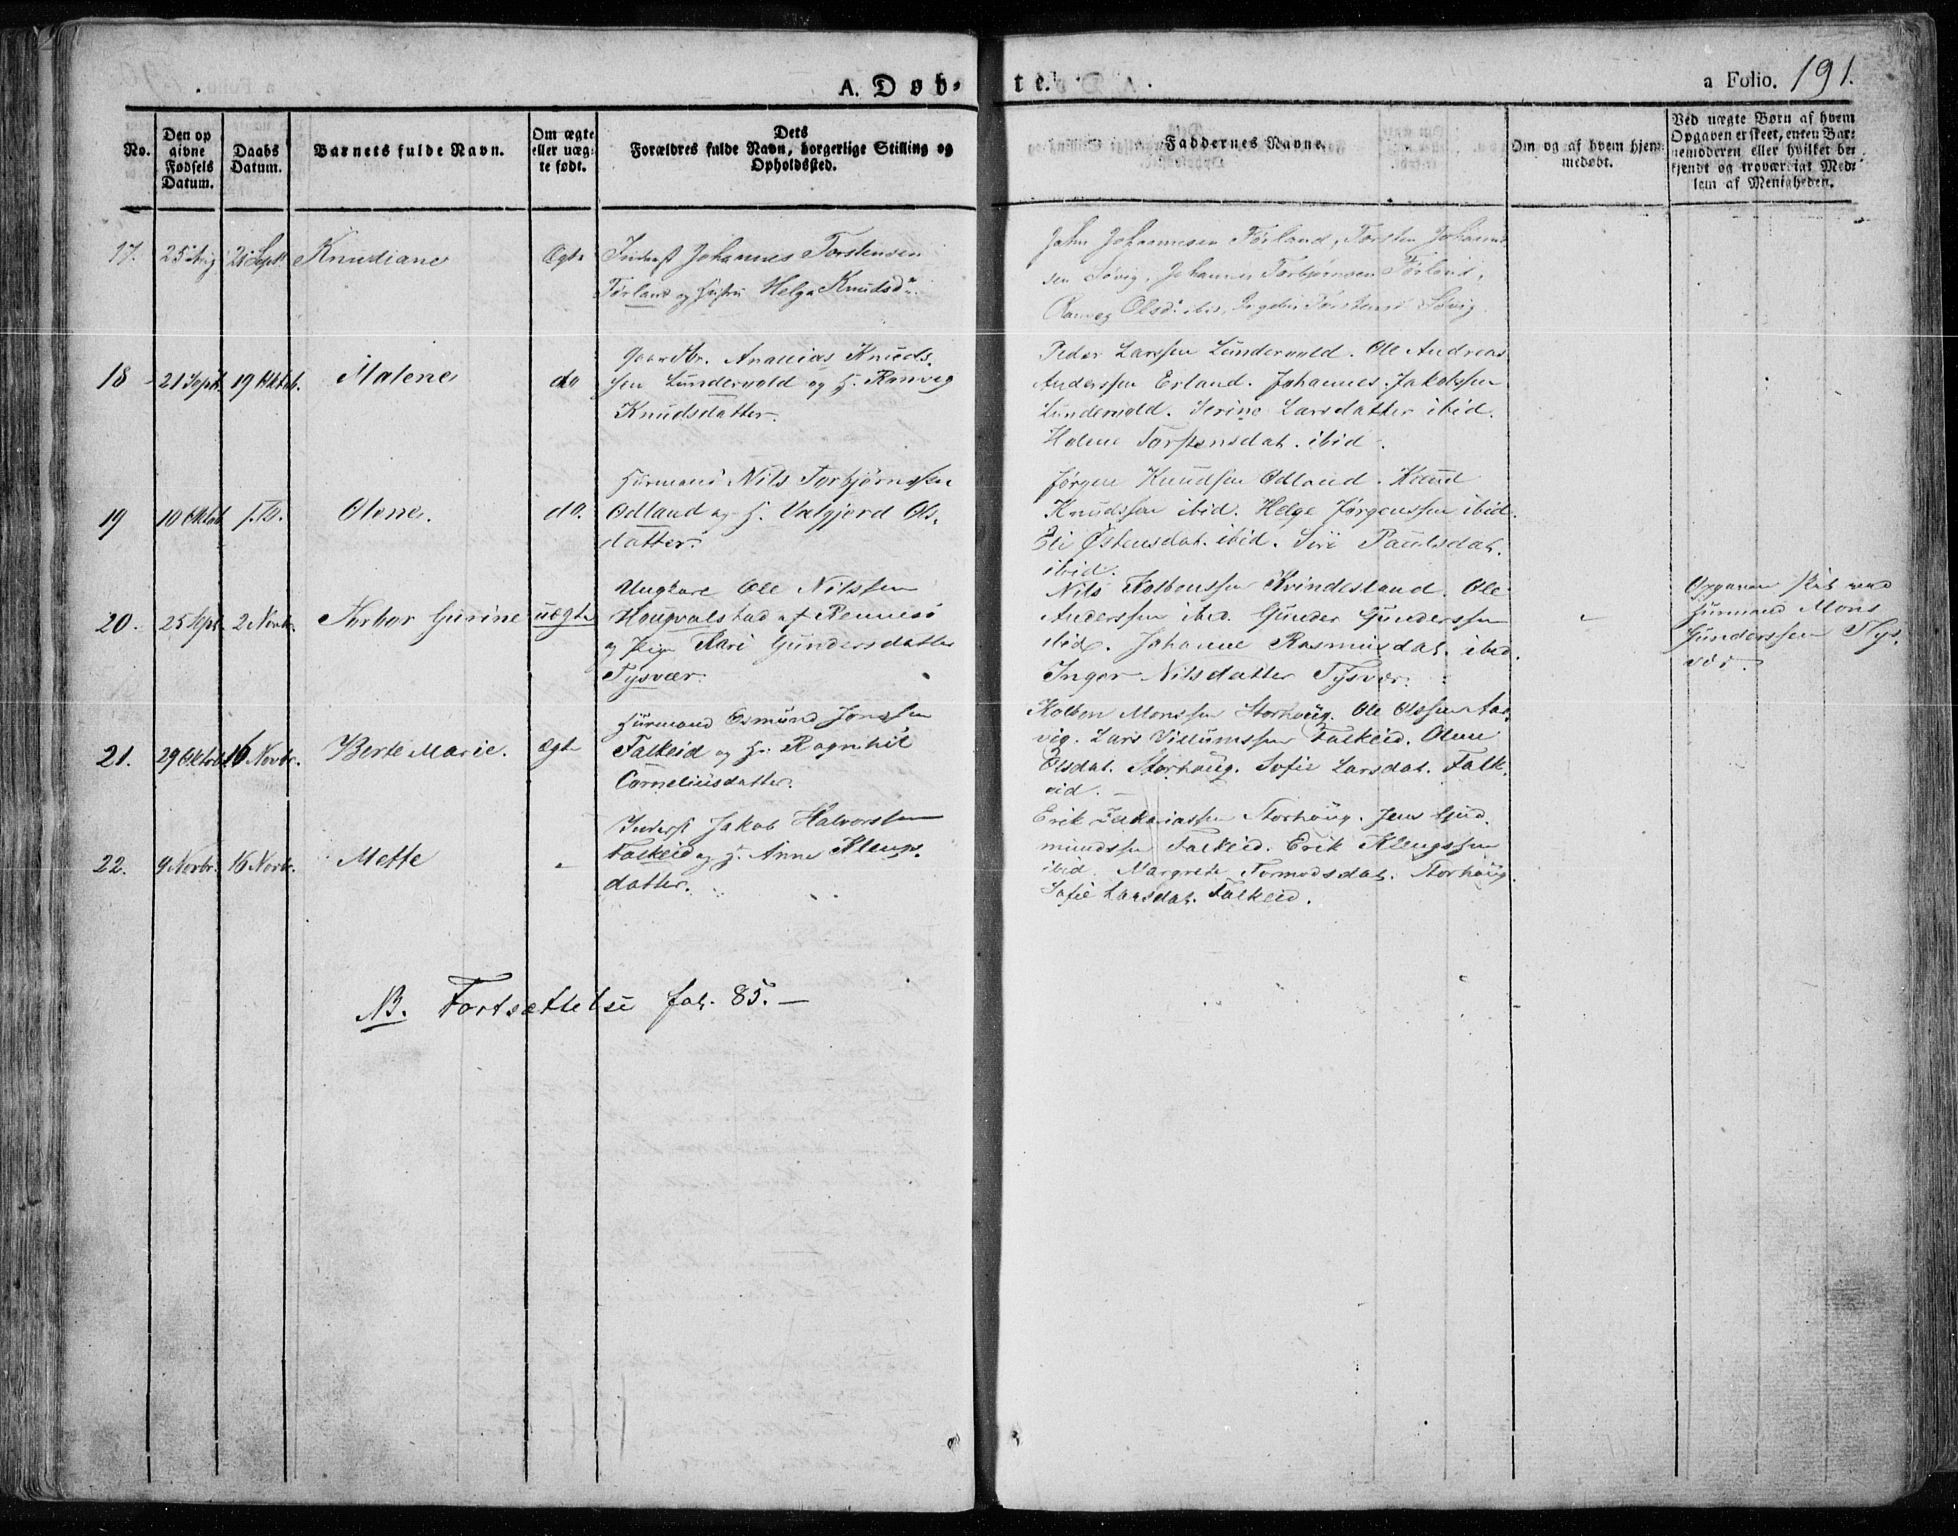 A. Døb-
te.
a Folio. 191.
No.
Den op
givne
Fødsels
Datum.
Daabs
Datum.
Barnets fulde Navn.
Om ægte
eller uæg-
te født.
Dets
Forældres fulde Navn, borgerlige Stilling og
Opholdssted.
Faddernes Navne.
Om og af hvem hjem-
medøbt.
Ved uægte Børn af hvem
Opgaven er skeet, enten Bar-
nemoderen eller hvilket be-
kjendt og troværdigt Med-
lem af Menigheden.
17. 25 Aug 21 Sept. Knudiane Ægte
Inderst Johannes Torstensen
Førland og Hustru Helga Knudsdr.
John Johannesen Førland, Torsten Johanne-
sen Søvig, Johannes Torbjørnsen Førland,
Olsdr. ibid, Torstensd Søvig.
18 21 Sept. 19 Oktob. Malene do
Gaardbr. Ananias Knuds-
sen Lundervold og H. Ranveg
Knudsdatter.
Peder Larssen Lundervold. Ole Andreas
Anderssen Erland. Johannes Jakobssen
Lundervold. Serine Larsdatter ibid.
Helene Torstensdat. ibid.
19 10 Oktob. Olene. do.
Huusmand Nils Torbjørnssen
Odland og H. Valgjerd Ols-
datter.
Jørgen Knudsen Odland. Knud
Knudssen ibid. Helge Jørgenssen ibid.
Eli Østensdat. ibid. Siri Paulsdat.
ibid.
20. 25 Sept. 2 Novbr. Torbor Gurine uægte
Ungkarl Ole Nilssen
Hougvalstad af Rennesø
og Pige Kari Gundersdatter
Tysvær.
Nils Kolbenssen Kvindesland. Ole
Anderssen ibid. Gunder Gunderssen
ibid. Johanne Rasmusdat. ibid.
Inger Nilsdatter Tysvær.
Opgaven skét ved
Huusmand Mons
Gunderssen Tys-
vær.
21. 29 Oktob. 16 Novbr. Berte Marie. Ægte
Huusmand Osmund Jonssen
Falkeid og H. Ragnhil
Corneliusdatter.
Kolben Monssen Storhoug. Ole Olssen Aar-
vig. Lars Villumssen Falkeid. Olene
Olsdat. Storhoug. Sofie Larsdat. Falk-
eid.
22. 9 Novbr. 16 Novbr. Mette
Inderst Jakob Halvorssen
Falkeid og H. Anne Klengs-
datter.
Erik Zakariassen Storhoug. Jens Gud-
mundssen Falkeid. Erik Klengssen
ibid. Margrete Tormodsdat. Storhoug.
Sofie Larsdat. Falkeid.
NB. Fortsættelse fol. 85.